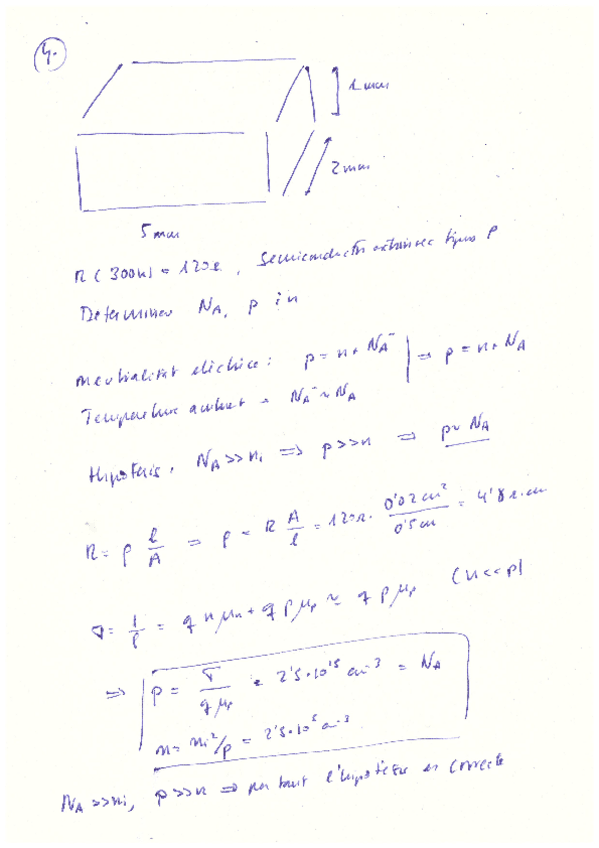 4.
1 mm
2 mm
5 mm
R(300K) = 120Ω, Semiconductor extrínsec tipus P
Determineu NA, p i n
neutralitat elèctrica: p = n + NA⁻ | ⇒ p = n + NA
Temperatura ambient → NA⁻ ≈ NA
Hipòtesis, NA >> ni ⇒ p >> n ⇒ p ≈ NA
R = ρ l/A ⇒ ρ = R A/l = 120Ω · 0'02 cm²/0'5 cm = 4'8 Ω·cm
σ = 1/ρ = q n μn + q p μp ≈ q p μp (n << p)
⇒ p = σ/(q μp) = 2'5·10¹⁵ cm⁻³ = NA
n = ni²/p = 2'5·10⁵ cm⁻³
NA >> ni, p >> n ⇒ per tant l'hipòtesis es correcte